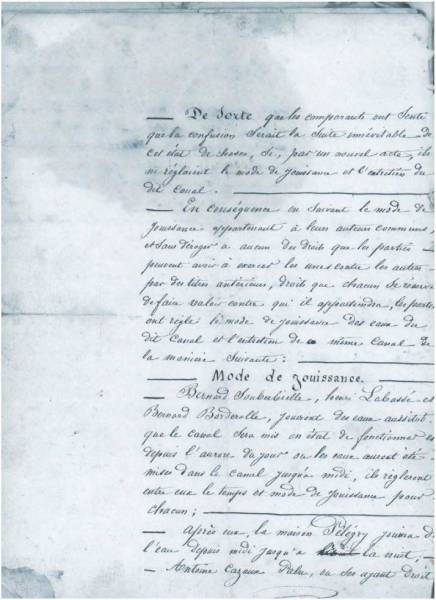 — De Sorte que les comparants ont Senti
que la confusion Serait la Suite innévitable de
cet état de choses, Si, par un nouvel acte, ils
ne réglaient le mode de Jouissance et l'entretien du
dit Canal.
— En Conséquence en Suivant le mode de
Jouissance appartenait à leurs auteurs communs,
et Sans déroger a aucun des droits que les parties
peuvent avoir à exercer les unes contre les autres
par des titres antérieurs, droits que chacun Se réserve
de faire valoir contre qui il appartiendra, les parties
ont réglé le mode de jouissance des eaux du
dit Canal et l'entretien de même Canal de
la manière Suivante :
Mode de Jouissance.
— Bernard , henri Labassé et
Bernard Borderolle, Jouiront des eaux aussitôt
que le Canal Sera mis en état de fonctionner et
depuis l'aurore du Jour ou les eaux auront été
mises dans le Canal jusqu'a midi, ils règleront
entre eux le temps et mode de Jouissance pour
chacun ;
— Après eux, la maison Pélégry jouira de
l'eau depuis midi jusqu'a la nuit ;
— Antoine Cazaux Palu, ou Ses ayant Droit